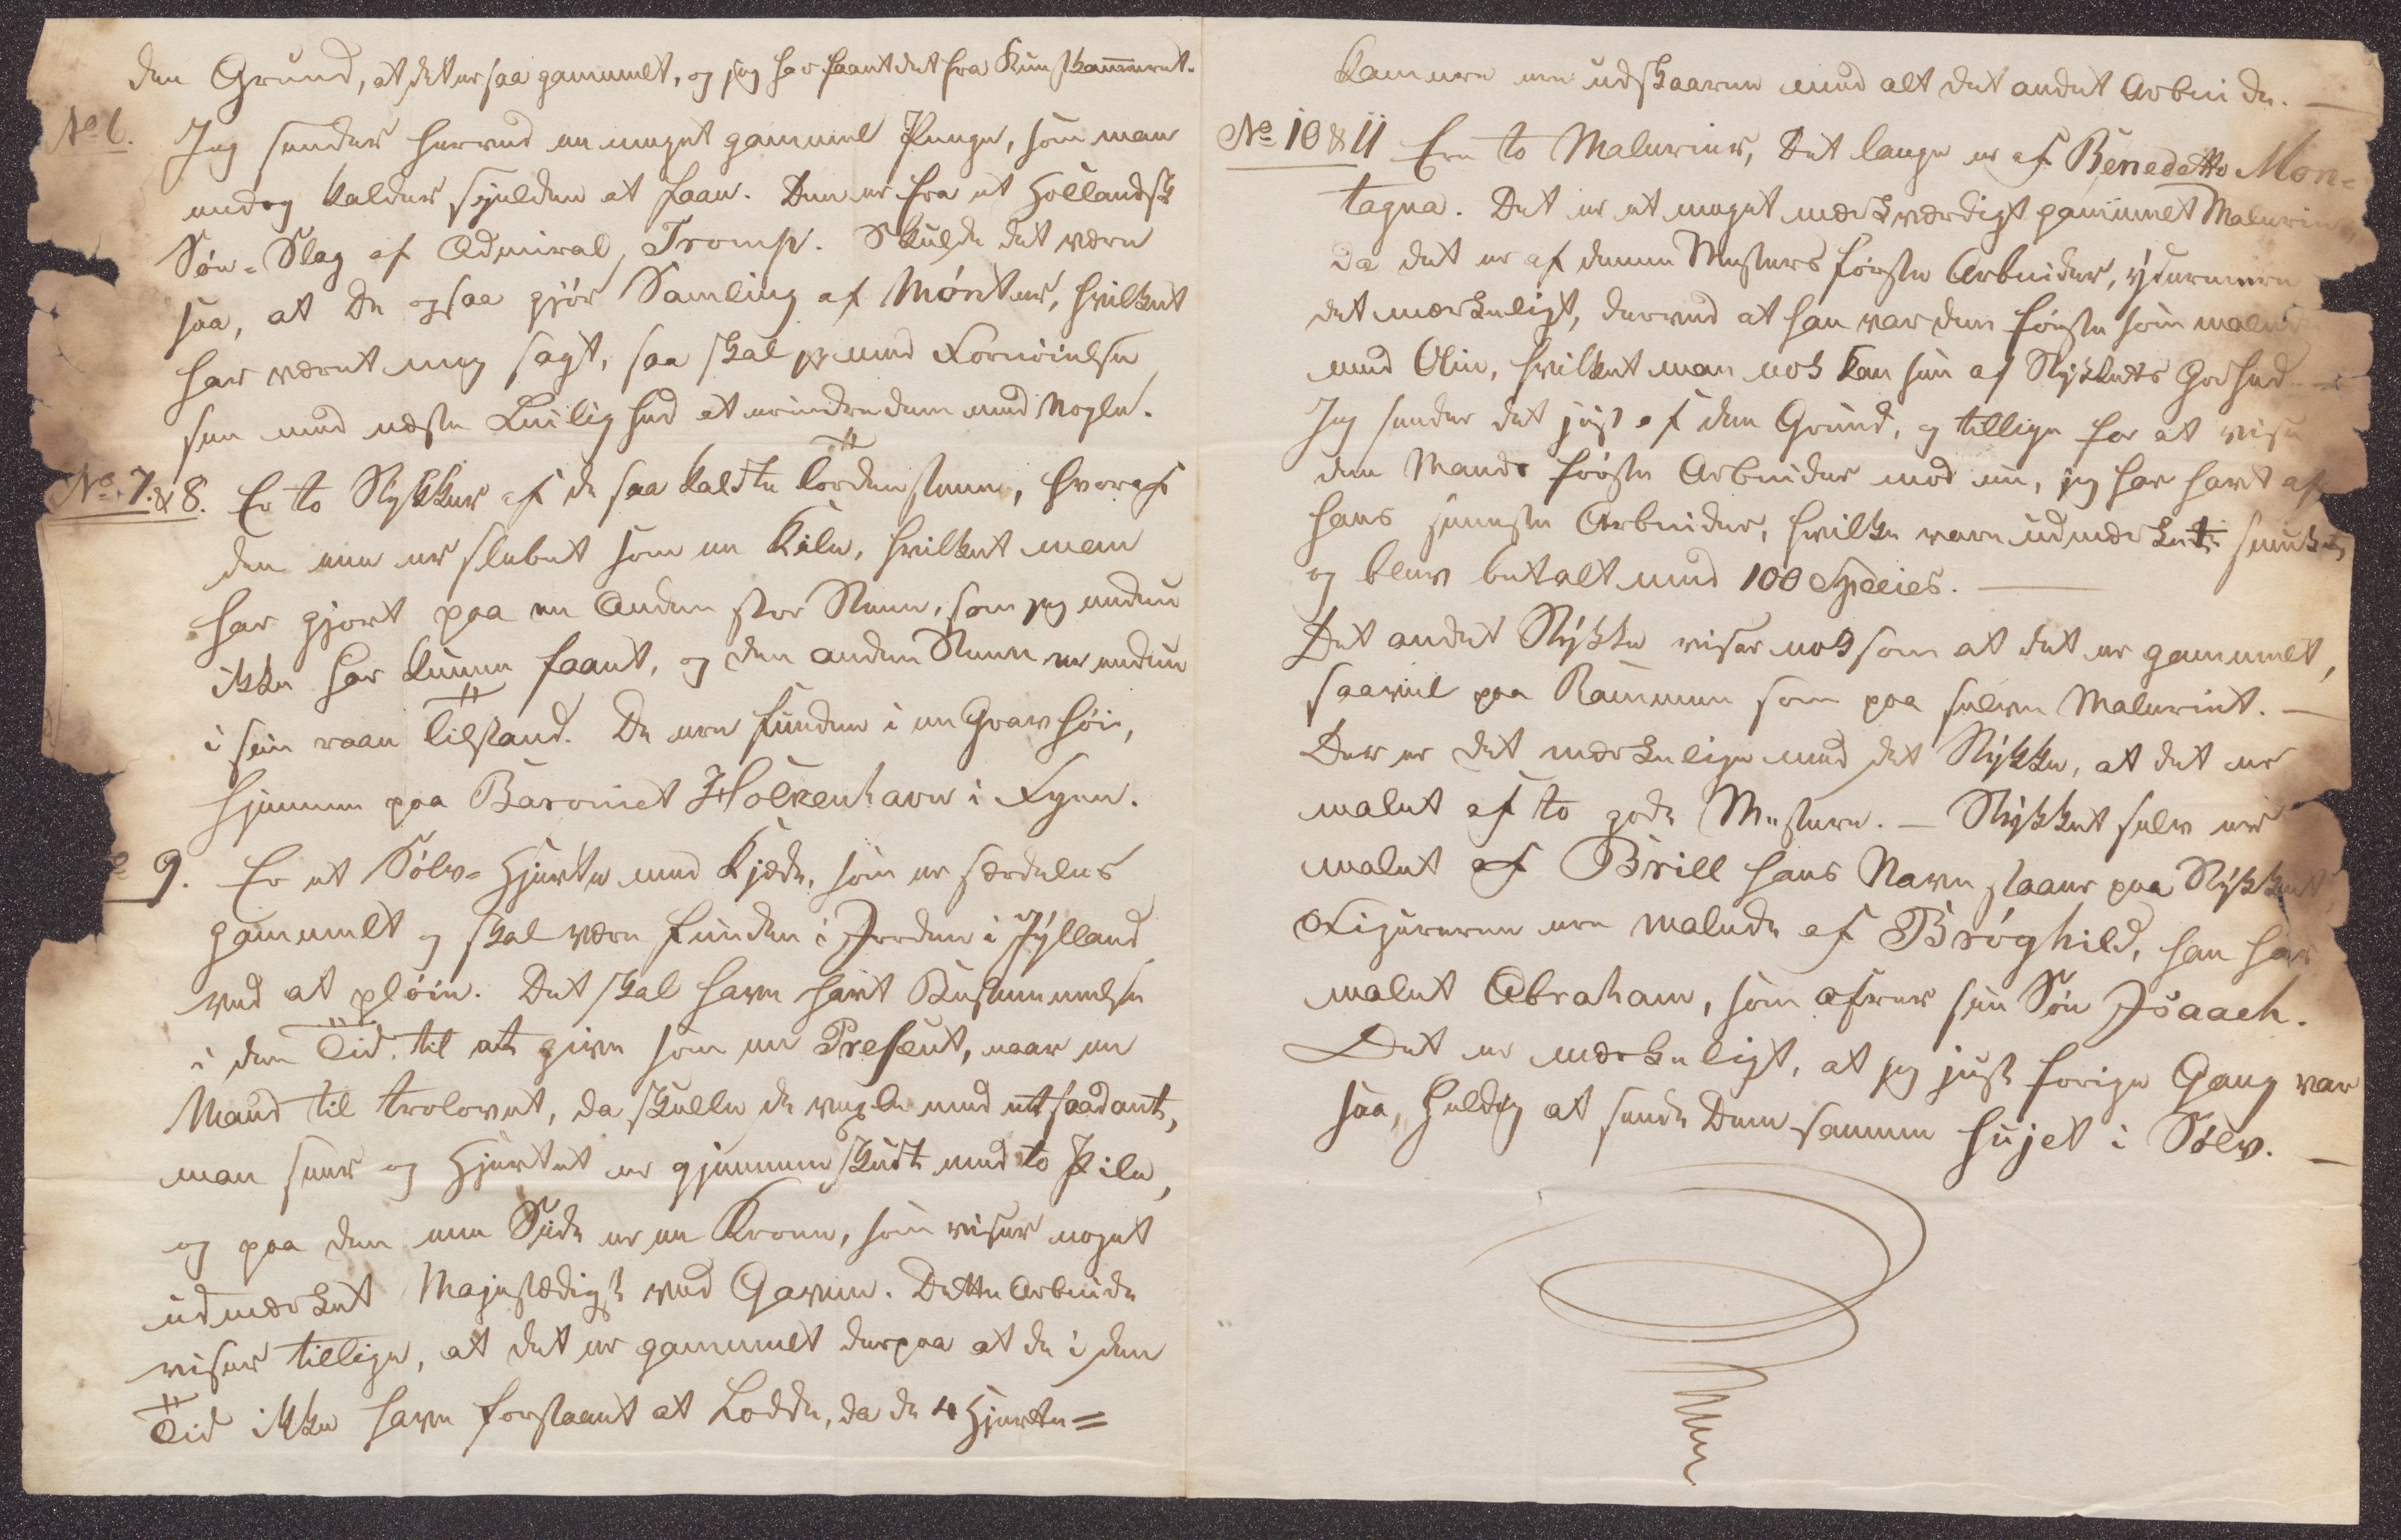 den Grund, at det er saa gammelt, og jeg har faaet det fra Kunstkammeret.
No 6. Jeg sender herved en meget gammel Penge, som man
endog kalder sjelden at faae. Den er fra et Hollandsk
Søe-Slag af Admiral Tromp. Skulde det være
saa, at De ogsaa gjør Samling af Mønter, hvilket
har været mig sagt, saa skal jeg med Fornøielse
see med næste Leilighed at erindre dem med Nogle.
No 7. & 8. Er to Stykker af de saa kaldte Tordenstene, hvoraf
den ene er slebet som en Kile, hvilket man
har gjort paa en Anden stor Steen, som jeg endnu
ikke har kunne faaet, og den anden Steen er endnu
i sin raae Tilstand. De ere funden i en Gravhøi,
hjemme paa Baroniet Holckenhavn i Fyen.
9. Er et Sølv-Hjerte med Kjæde, som er særdeles
gammelt og skal være funden i Jorden i Jylland
ved at pløie. Det skal have havt Bestemmelse
i den Tid til at give som en Present, naar en
Mand til trolovet, da skulle de vexle med et saadant,
man seer og Hjertet er gjennemskudt med to Pile,
og paa den ene Side er en Krone, som viser noget
udmærket Majestædigst ved Gaven. Dette Arbeide
viser tillige, at det er gammelt derpaa at de i den
Tid ikke have forstaaet at Lodde, da de 4 Hjerte=
kamere ere udskaaren med alt det andet Arbeide. —
No 10 & 11 Ere to Malerier, Det lange er af Benedetto Mon-
tagna. Det er et meget mærkværdigt gammelt Malerie,
da det er af denne Mesters første Arbeider, ydermere
det mærkeligt, derved at han var den første som malede
med Olie, hvilket man nok kan see af Stykkets Godhed. —
Jeg sender det just af den Grund, og tillige for at vise
den Mands første Arbeider mod nu, jeg har havt af
hans seneste Arbeider, hvilke vare udmærkete smukke,
og blev betalt med 100 Species. —
Det andet Stykke viser nok som at det er gammelt,
saavel paa Rammen som paa selve Maleriet. —
Der er det mærkelige med det Stykke, at det er
malet af to gode Mestere. — Stykket selv er
malet af Brill hans Navn staaer paa Stykket,
Figurerne ere malede af Brøghild, han har
malet Abraham, som ofrer sin Søn Isaach.
Det er mærkeligt, at jeg just forige Gang var
saa, heldig at sende Dem samme Sujet i Sølv. —